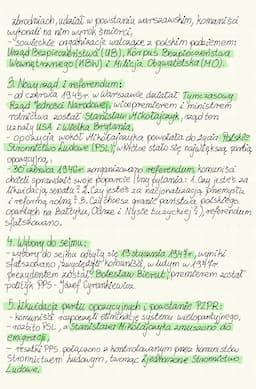 zbrodniach, udział w powstaniu warszawskim, komuniści
wykonali na nim wyrok śmierci,
- sowieckie organizacje walczące z polskim podziemiem:
Urząd Bezpieczeństwa (UB), Korpus Bezpieczeństwa
Wewnętrznego (KBW) i Milicja Obywatelska (MO).
3. Nowy rząd i referendum:
- od czerwca 1945r. w Warszawie działał Tymczasowy
Rząd Jedności Narodowej, wicepremierem i ministrem
rolnictwa został Stanisław Mikołajczyk, rząd ten
uznały USA i Wielka Brytania,
- opozycja wokół Mikołajczyka powołała do życia Polskie
Stronnictwo Ludowe (PSL), wkrótce stało się największą partią
opozycyjną,
- 30 czerwca 1946r. zorganizowano referendum, komuniści
chcieli sprawdzić swoje poparcie (trzy pytania: 1. Czy jesteś za
likwidacją senatu? 2. Czy jesteś za nacjonalizacją przemysłu
i reformą rolną? 3. Czy chcesz granic państwa polskiego
opartych na Bałtyku, Odrze i Nysie Łużyckiej?), referendum
sfałszowano.
4. Wybory do sejmu:
- wybory do sejmu odbyły się 19 stycznia 1947r., wyniki
sfałszowano, zwyciężyli komuniści, w lutym w 1947r.
prezydentem został Bolesław Bierut, premierem został
polityk PPS - Józef Cyrankiewicz.
5. Likwidacja partii opozycyjnych i powstanie PZPR:
- komuniści rozpoczęli eliminację systemu wielopartyjnego,
- rozbito PSL, a Stanisława Mikołajczyka zmuszono do
emigracji,
- resztki PPS połączono z kontrolowanym przez komunistów
Stronnictwem Ludowym, tworząc Zjednoczone Stronnictwo
Ludowe,